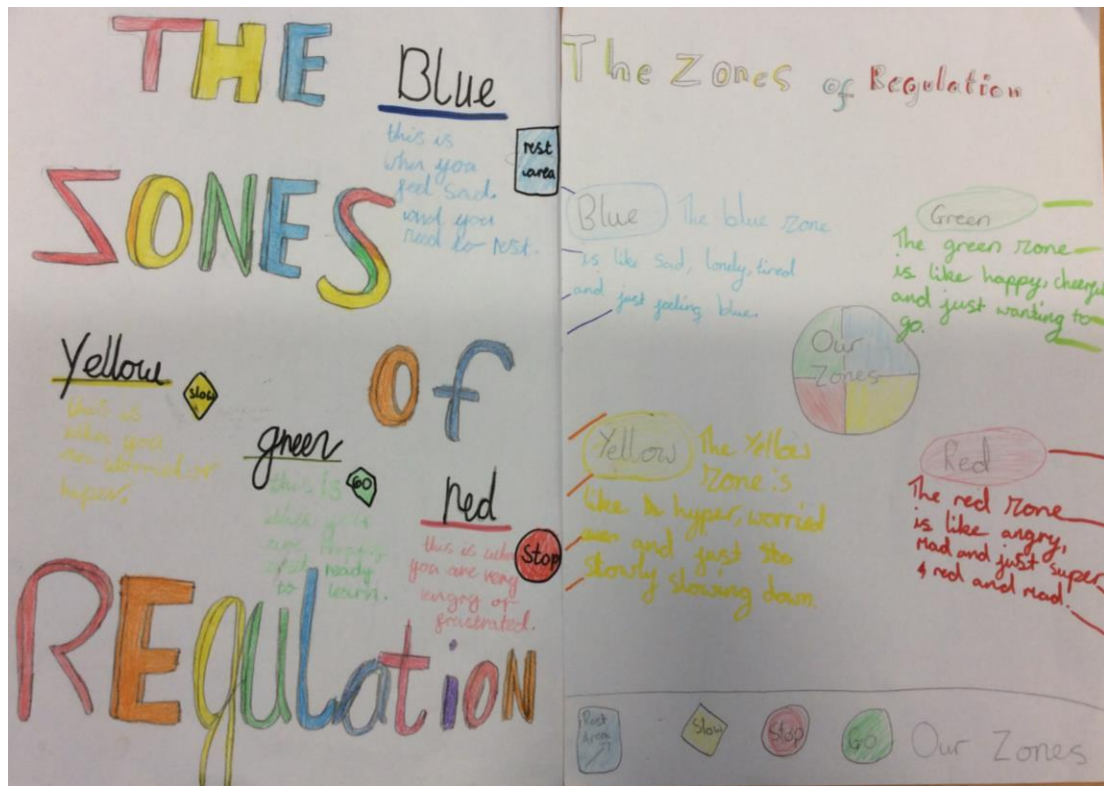 THE
ZONES
OF
REgulatioN
Blue
this is
when you
feel sad.
and you
need to rest.
rest
area
Yellow
slow
this is
when you
are worried or
hyper.
green
GO
this is
when you
are happy
and ready
to learn.
red
Stop
this is when
you are very
angry or
frustrated.
The Zones of Regulation
Blue The blue zone
is like sad, lonely, tired
and just feeling blue.
Green
The green zone
is like happy, cheerful
and just wanting to
go.
Our
Zones
Yellow The Yellow
zone is
like hyper, worried
and just
slowly slowing down.
Red
The red zone
is like angry,
mad and just super
red and mad.
Rest
Area
Slow
Stop
GO
Our Zones